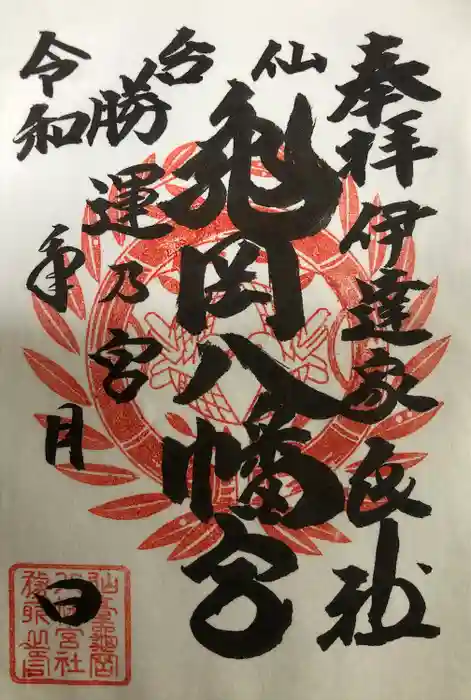 奉拝 伊達家氏社
仙台
亀岡八幡宮
勝運乃宮
令和 年 月 日